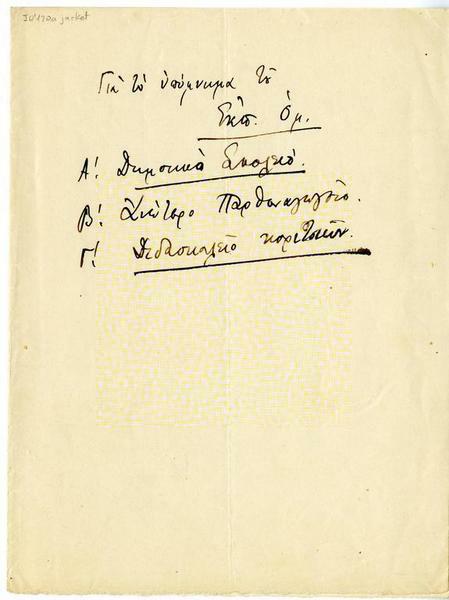 IU 120a jacket
Γιὰ τὸ ὑπόμνημα τοῦ
Ἐκπ. Ὁμ.
Α! Δημοτικὸ Σχολεῖο.
Β! Ἀνώτερο Παρθεναγωγεῖο.
Γ! Διδασκαλεῖο κοριτσιῶν.